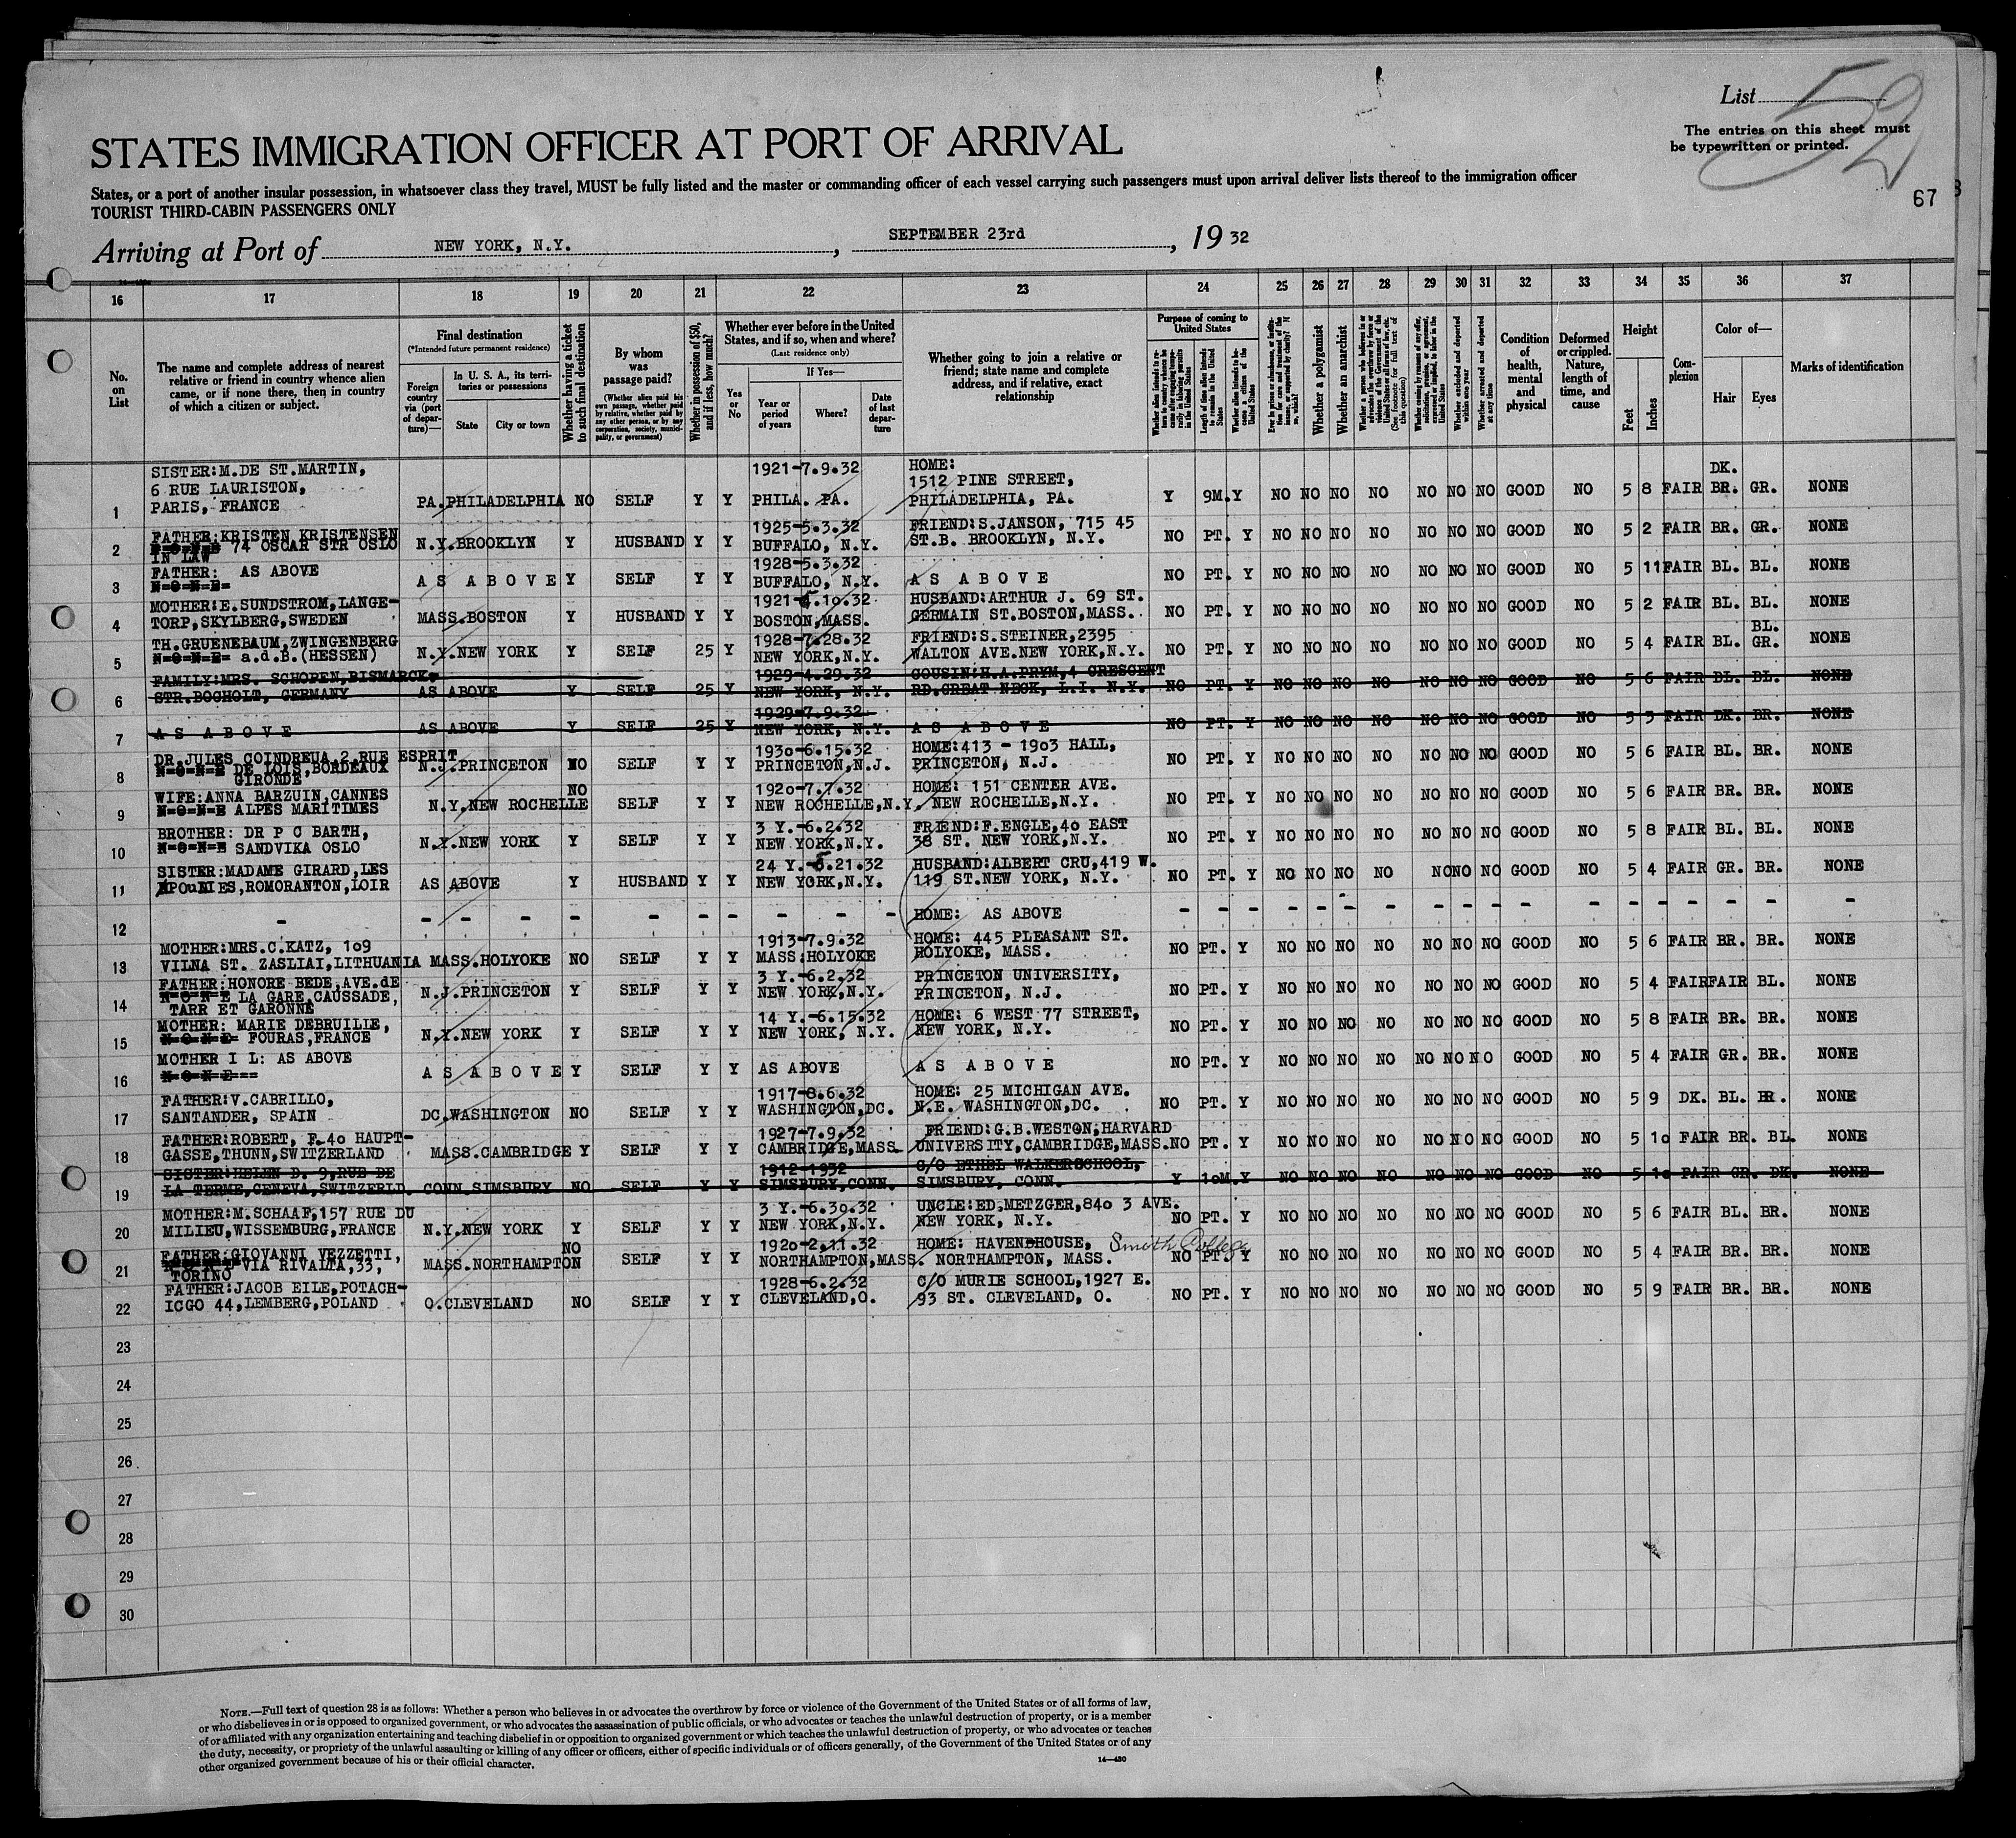 List 59
The entries on this sheet must
be typewritten or printed.
STATES IMMIGRATION OFFICER AT PORT OF ARRIVAL
States, or a port of another insular possession, in whatsoever class they travel, MUST be fully listed and the master or commanding officer of each vessel carrying such passengers must upon arrival deliver lists thereof to the immigration officer
TOURIST THIRD-CABIN PASSENGERS ONLY
67
Arriving at Port of NEW YORK, N.Y., SEPTEMBER 23rd, 19 32
16 17 18 19 20 21 22 23 24 25 26 27 28 29 30 31 32 33 34 35 36 37
No. on List
The name and complete address of nearest relative or friend in country whence alien came, or if none there, then in country of which a citizen or subject.
Final destination
(*Intended future permanent residence)
Foreign country via (port of departure)—
In U. S. A., its territories or possessions
State
City or town
Whether having a ticket to such final destination
By whom was passage paid?
(Whether alien paid his own passage, whether paid by relative, whether paid by any other person, or by any corporation, society, municipality, or government)
Whether in possession of $50, and if less, how much?
Whether ever before in the United States, and if so, when and where?
(Last residence only)
Yes or No
If Yes—
Year or period of years
Where?
Date of last departure
Whether going to join a relative or friend; state name and complete address, and if relative, exact relationship
Purpose of coming to United States
Length of time alien intends to remain in the United States
Whether alien intends to become a citizen of the United States
Whether a polygamist
Whether an anarchist
Whether excluded and deported within one year
Whether arrested and deported at any time
Condition of health, mental and physical
Deformed or crippled. Nature, length of time, and cause
Height
Feet
Inches
Complexion
Color of—
Hair
Eyes
Marks of identification
SISTER:M.DE ST.MARTIN, 1921-7.9.32 HOME: DK.
6 RUE LAURISTON, 1512 PINE STREET,
1 PARIS, FRANCE PA.PHILADELPHIA NO SELF Y Y PHILA. PA. PHILADELPHIA, PA. Y 9M.Y NO NO NO NO NO NO NO GOOD NO 5 8 FAIR BR. GR. NONE
FATHER:KRISTEN KRISTENSEN 1925-5.3.32 FRIEND:S.JANSON, 715 45
2 N-O-N-E 74 OSCAR STR OSLO N.Y.BROOKLYN Y HUSBAND Y Y BUFFALO, N.Y. ST.B. BROOKLYN, N.Y. NO PT. Y NO NO NO NO NO NO NO GOOD NO 5 2 FAIR BR. GR. NONE
IN LAW
FATHER: AS ABOVE 1928-5.3.32
3 N-O-N-E- AS ABOVE Y SELF Y Y BUFFALO, N.Y. AS ABOVE NO PT. Y NO NO NO NO NO NO NO GOOD NO 5 11 FAIR BL. BL. NONE
MOTHER:E.SUNDSTROM,LANGE- 1921- .10.32 HUSBAND:ARTHUR J. 69 ST.
4 TORP,SKYLBERG,SWEDEN MASS.BOSTON Y HUSBAND Y Y BOSTON,MASS. GERMAIN ST.BOSTON,MASS. NO PT. Y NO NO NO NO NO NO NO GOOD NO 5 2 FAIR BL. BL. NONE
TH.GRUENEBAUM,ZWINGENBERG 1928-7.28.32 FRIEND:S.STEINER,2395 BL.
5 N-O-N-E- a.d.B.(HESSEN) N.Y.NEW YORK Y SELF 25 Y NEW YORK,N.Y. WALTON AVE.NEW YORK,N.Y. NO PT. Y NO NO NO NO NO NO NO GOOD NO 5 4 FAIR BL. GR. NONE
FAMILY:MRS. SCHOPEN,BISMARCK- 1929-4.29.32 COUSIN:H.A.PRYM,4 CRESCENT
6 STR.BOCHOLT, GERMANY AS ABOVE Y SELF 25 Y NEW YORK, N.Y. RD.GREAT NECK, L.I. N.Y. NO PT. Y NO NO NO NO NO NO NO GOOD NO 5 6 FAIR BL. BL. NONE
1929-7.9.32
7 AS ABOVE AS ABOVE Y SELF 25 Y NEW YORK, N.Y. AS ABOVE NO PT. Y NO NO NO NO NO NO NO GOOD NO 5 5 FAIR DK. BR. NONE
DR.JULES COINDREUA,2,RUE ESPRIT 1930-6.15.32 HOME:413 - 1903 HALL,
8 N-O-N-E DE LOIS,BORDEAUX N.J.PRINCETON NO SELF Y Y PRINCETON,N.J. PRINCETON, N.J. NO PT. Y NO NO NO NO NO NO NO GOOD NO 5 6 FAIR BL. BR. NONE
GIRONDE
WIFE:ANNA BARZUIN,CANNES NO 1920-7.7.32 HOME: 151 CENTER AVE.
9 N-O-N-E ALPES MARITIMES N.Y.NEW ROCHELLE SELF Y Y NEW ROCHELLE,N.Y. NEW ROCHELLE,N.Y. NO PT. Y NO NO NO NO NO NO NO GOOD NO 5 6 FAIR BR. BR. NONE
BROTHER: DR P C BARTH, 3 Y.-6.2.32 FRIEND:F.ENGLE,40 EAST
10 N-O-N-E SANDVIKA OSLO N.Y.NEW YORK Y SELF Y Y NEW YORK,N.Y. 38 ST. NEW YORK,N.Y. NO PT. Y NO NO NO NO NO NO NO GOOD NO 5 8 FAIR BL. BL. NONE
SISTER:MADAME GIRARD,LES 24 Y.- .21.32 HUSBAND:ALBERT CRU,419 W.
11 ROMORANTON,LOIR AS ABOVE Y HUSBAND Y Y NEW YORK,N.Y. 119 ST.NEW YORK, N.Y. NO PT. Y NO NO NO NO NO NO NO GOOD NO 5 4 FAIR GR. BR. NONE
12 - - - - - - - - - - - HOME: AS ABOVE - - - - - - - - - - - - - - - - - -
MOTHER:MRS.C.KATZ, 109 1913-7.9.32 HOME: 445 PLEASANT ST.
13 VILNA ST. ZASLIAI,LITHUANIA MASS.HOLYOKE NO SELF Y Y MASS.HOLYOKE HOLYOKE, MASS. NO PT. Y NO NO NO NO NO NO NO GOOD NO 5 6 FAIR BR. BR. NONE
FATHER:HONORE BEDE,AVE.dE 3 Y.-6.2.32 PRINCETON UNIVERSITY,
14 N-O-N-E LA GARE,CAUSSADE, N.J.PRINCETON Y SELF Y Y NEW YORK,N.Y. PRINCETON, N.J. NO PT. Y NO NO NO NO NO NO NO GOOD NO 5 4 FAIR FAIR BL. NONE
TARR ET GARONNE
MOTHER: MARIE DEBRUILLE, 14 Y.-6.15.32 HOME: 6 WEST 77 STREET,
15 N-O-N-E- FOURAS,FRANCE N.Y.NEW YORK Y SELF Y Y NEW YORK, N.Y. NEW YORK, N.Y. NO PT. Y NO NO NO NO NO NO NO GOOD NO 5 8 FAIR BR. BR. NONE
MOTHER I L: AS ABOVE
16 N-O-N-E--- AS ABOVE Y SELF Y Y AS ABOVE AS ABOVE NO PT. Y NO NO NO NO NO NO NO GOOD NO 5 4 FAIR GR. BR. NONE
FATHER:V.CABRILLO, 1917-8.6.32 HOME: 25 MICHIGAN AVE.
17 SANTANDER, SPAIN DC.WASHINGTON NO SELF Y Y WASHINGTON,DC. N.E. WASHINGTON,DC. NO PT. Y NO NO NO NO NO NO NO GOOD NO 5 9 DK. BL. BR. NONE
FATHER:ROBERT, F.40 HAUPT- 1927-7.9.32 FRIEND:G.B.WESTON,HARVARD
18 GASSE,THUNN,SWITZERLAND MASS.CAMBRIDGE Y SELF Y Y CAMBRIDGE,MASS. UNIVERSITY,CAMBRIDGE,MASS. NO PT. Y NO NO NO NO NO NO NO GOOD NO 5 10 FAIR BR. BL. NONE
SISTER:HELEN D. 9,RUE DE 1912-1932 C/O ETHEL WALKERSCHOOL,
19 LA TERME,GENEVA,SWITZERLD. CONN.SIMSBURY NO SELF Y Y SIMSBURY,CONN. SIMSBURY, CONN. Y 10M.Y NO NO NO NO NO NO NO GOOD NO 5 10 FAIR GR. DK. NONE
MOTHER:M.SCHAAF,157 RUE DU 3 Y.-6.30.32 UNCLE:ED.METZGER,840 3 AVE.
20 MILIEU,WISSEMBURG,FRANCE N.Y.NEW YORK Y SELF Y Y NEW YORK,N.Y. NEW YORK, N.Y. NO PT. Y NO NO NO NO NO NO NO GOOD NO 5 6 FAIR BL. BR. NONE
FATHER:GIOVANNI VEZZETTI, NO 1920-2.11.32 HOME: HAVENHOUSE, Smith College
21 VIA RIVALTA,33, MASS.NORTHAMPTON SELF Y Y NORTHAMPTON,MASS. NORTHAMPTON, MASS. NO PT. Y NO NO NO NO NO NO NO GOOD NO 5 4 FAIR BR. BR. NONE
TORINO
FATHER:JACOB EILE,POTACH- 1928-6.2.32 C/O MURIE SCHOOL,1927 E.
22 ICGO 44,LEMBERG,POLAND O.CLEVELAND NO SELF Y Y CLEVELAND,O. 93 ST. CLEVELAND, O. NO PT. Y NO NO NO NO NO NO NO GOOD NO 5 9 FAIR BR. BR. NONE
23
24
25
26
27
28
29
30
NOTE.—Full text of question 28 is as follows: Whether a person who believes in or advocates the overthrow by force or violence of the Government of the United States or of all forms of law,
or who disbelieves in or is opposed to organized government, or who advocates the assassination of public officials, or who advocates or teaches the unlawful destruction of property, or is a member
of or affiliated with any organization entertaining and teaching disbelief in or opposition to organized government or which teaches the unlawful destruction of property, or who advocates or teaches
the duty, necessity, or propriety of the unlawful assaulting or killing of any officer or officers, either of specific individuals or of officers generally, of the Government of the United States or of any
other organized government because of his or their official character.
14—430